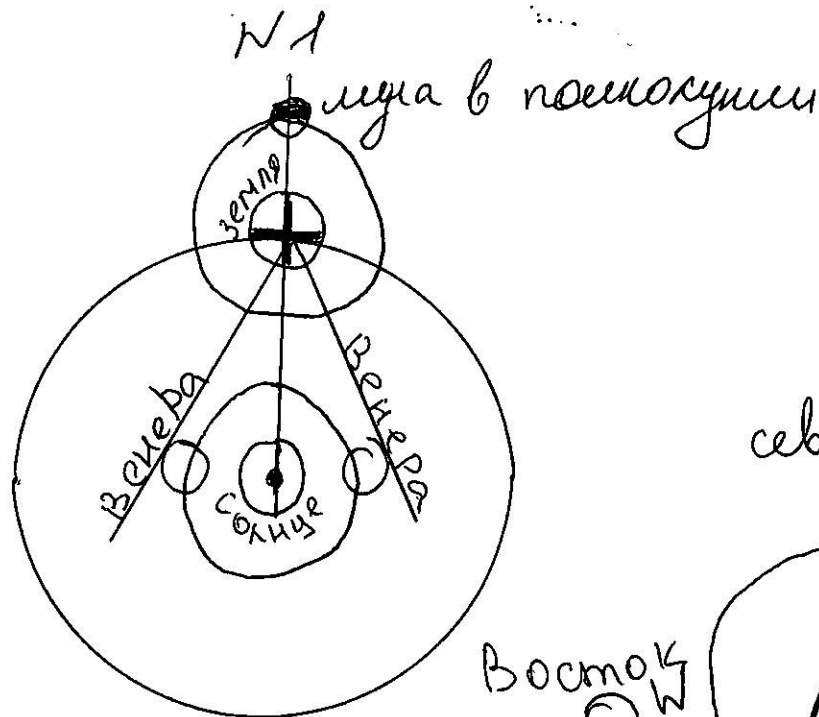 N1
луна в полнолунии
земля
Венера
Венера
солнце
сев
Восток
W